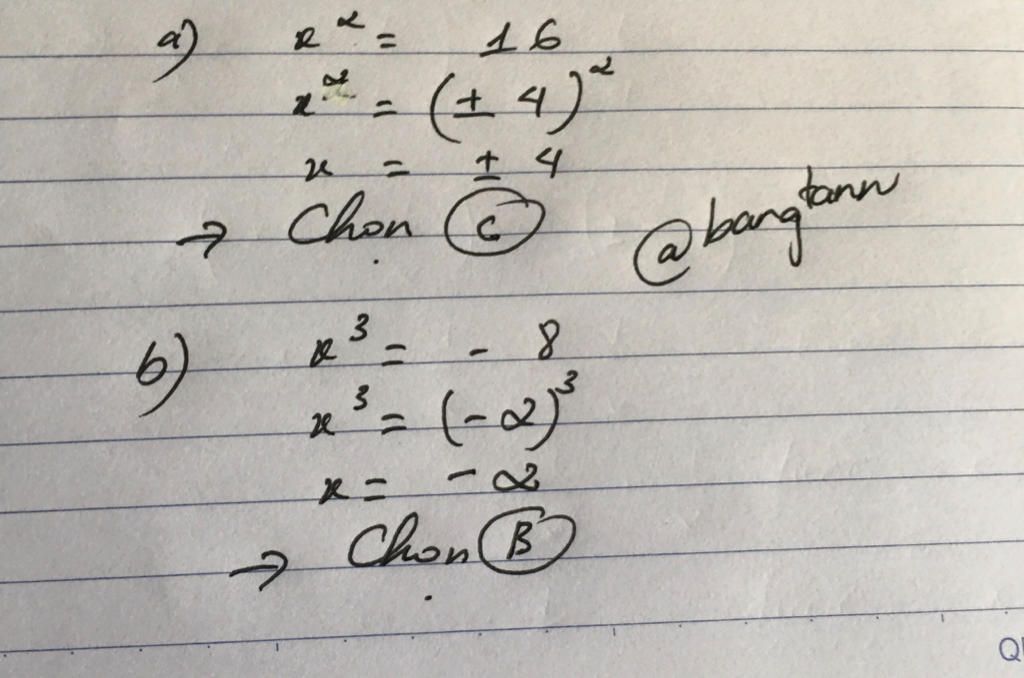 a) x² = 16
x² = (± 4)²
x = ± 4
→ Chọn C
@bangtann
b) x³ = - 8
x³ = (- 2)³
x = - 2
→ Chọn B